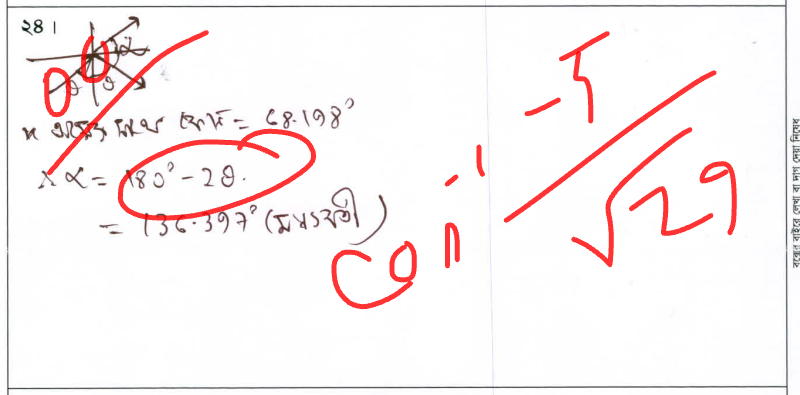 ২৪।
α
θ θ
x অক্ষের সাথে কোণ = 68.198°
∴ α = 180° - 2θ.
= 136.397° (মধ্যবর্তী)
cos⁻¹ -5/√29
বক্সের বাইরে লেখা বা দাগ দেয়া নিষেধ